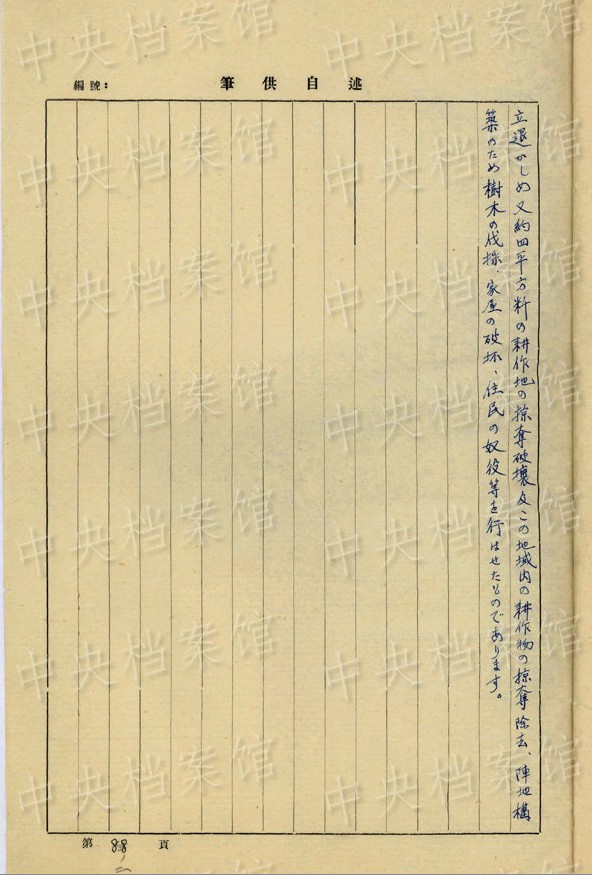 編號：
筆供自述
立退かしめ又約四平方粁の耕作地の掠奪破壊及この地域内の耕作物の掠奪除去、陣地構
築のため樹木の伐採、家屋の破坏、住民の奴役等を行はせたものであります。
第 88 頁
中央档案馆